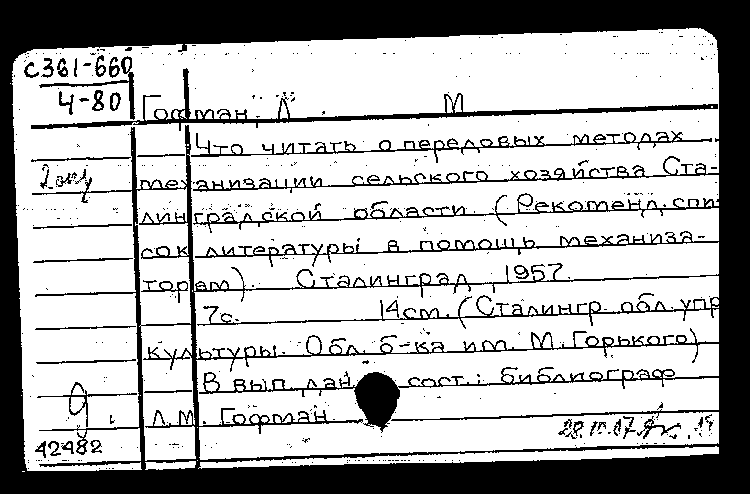 С361-660
4-80
Гофман, Л. М
Что читать о передовых методах
механизации сельского хозяйства Ста-
линградской области. (Рекоменд. спи-
сок литературы в помощь механиза-
торам). Сталинград, 1957.
7с. 14см. (Сталингр. обл. упр
культуры. Обл. б-ка им. М. Горького)
В вып. дан. сост.: библиограф
Л.М. Гофман
42482